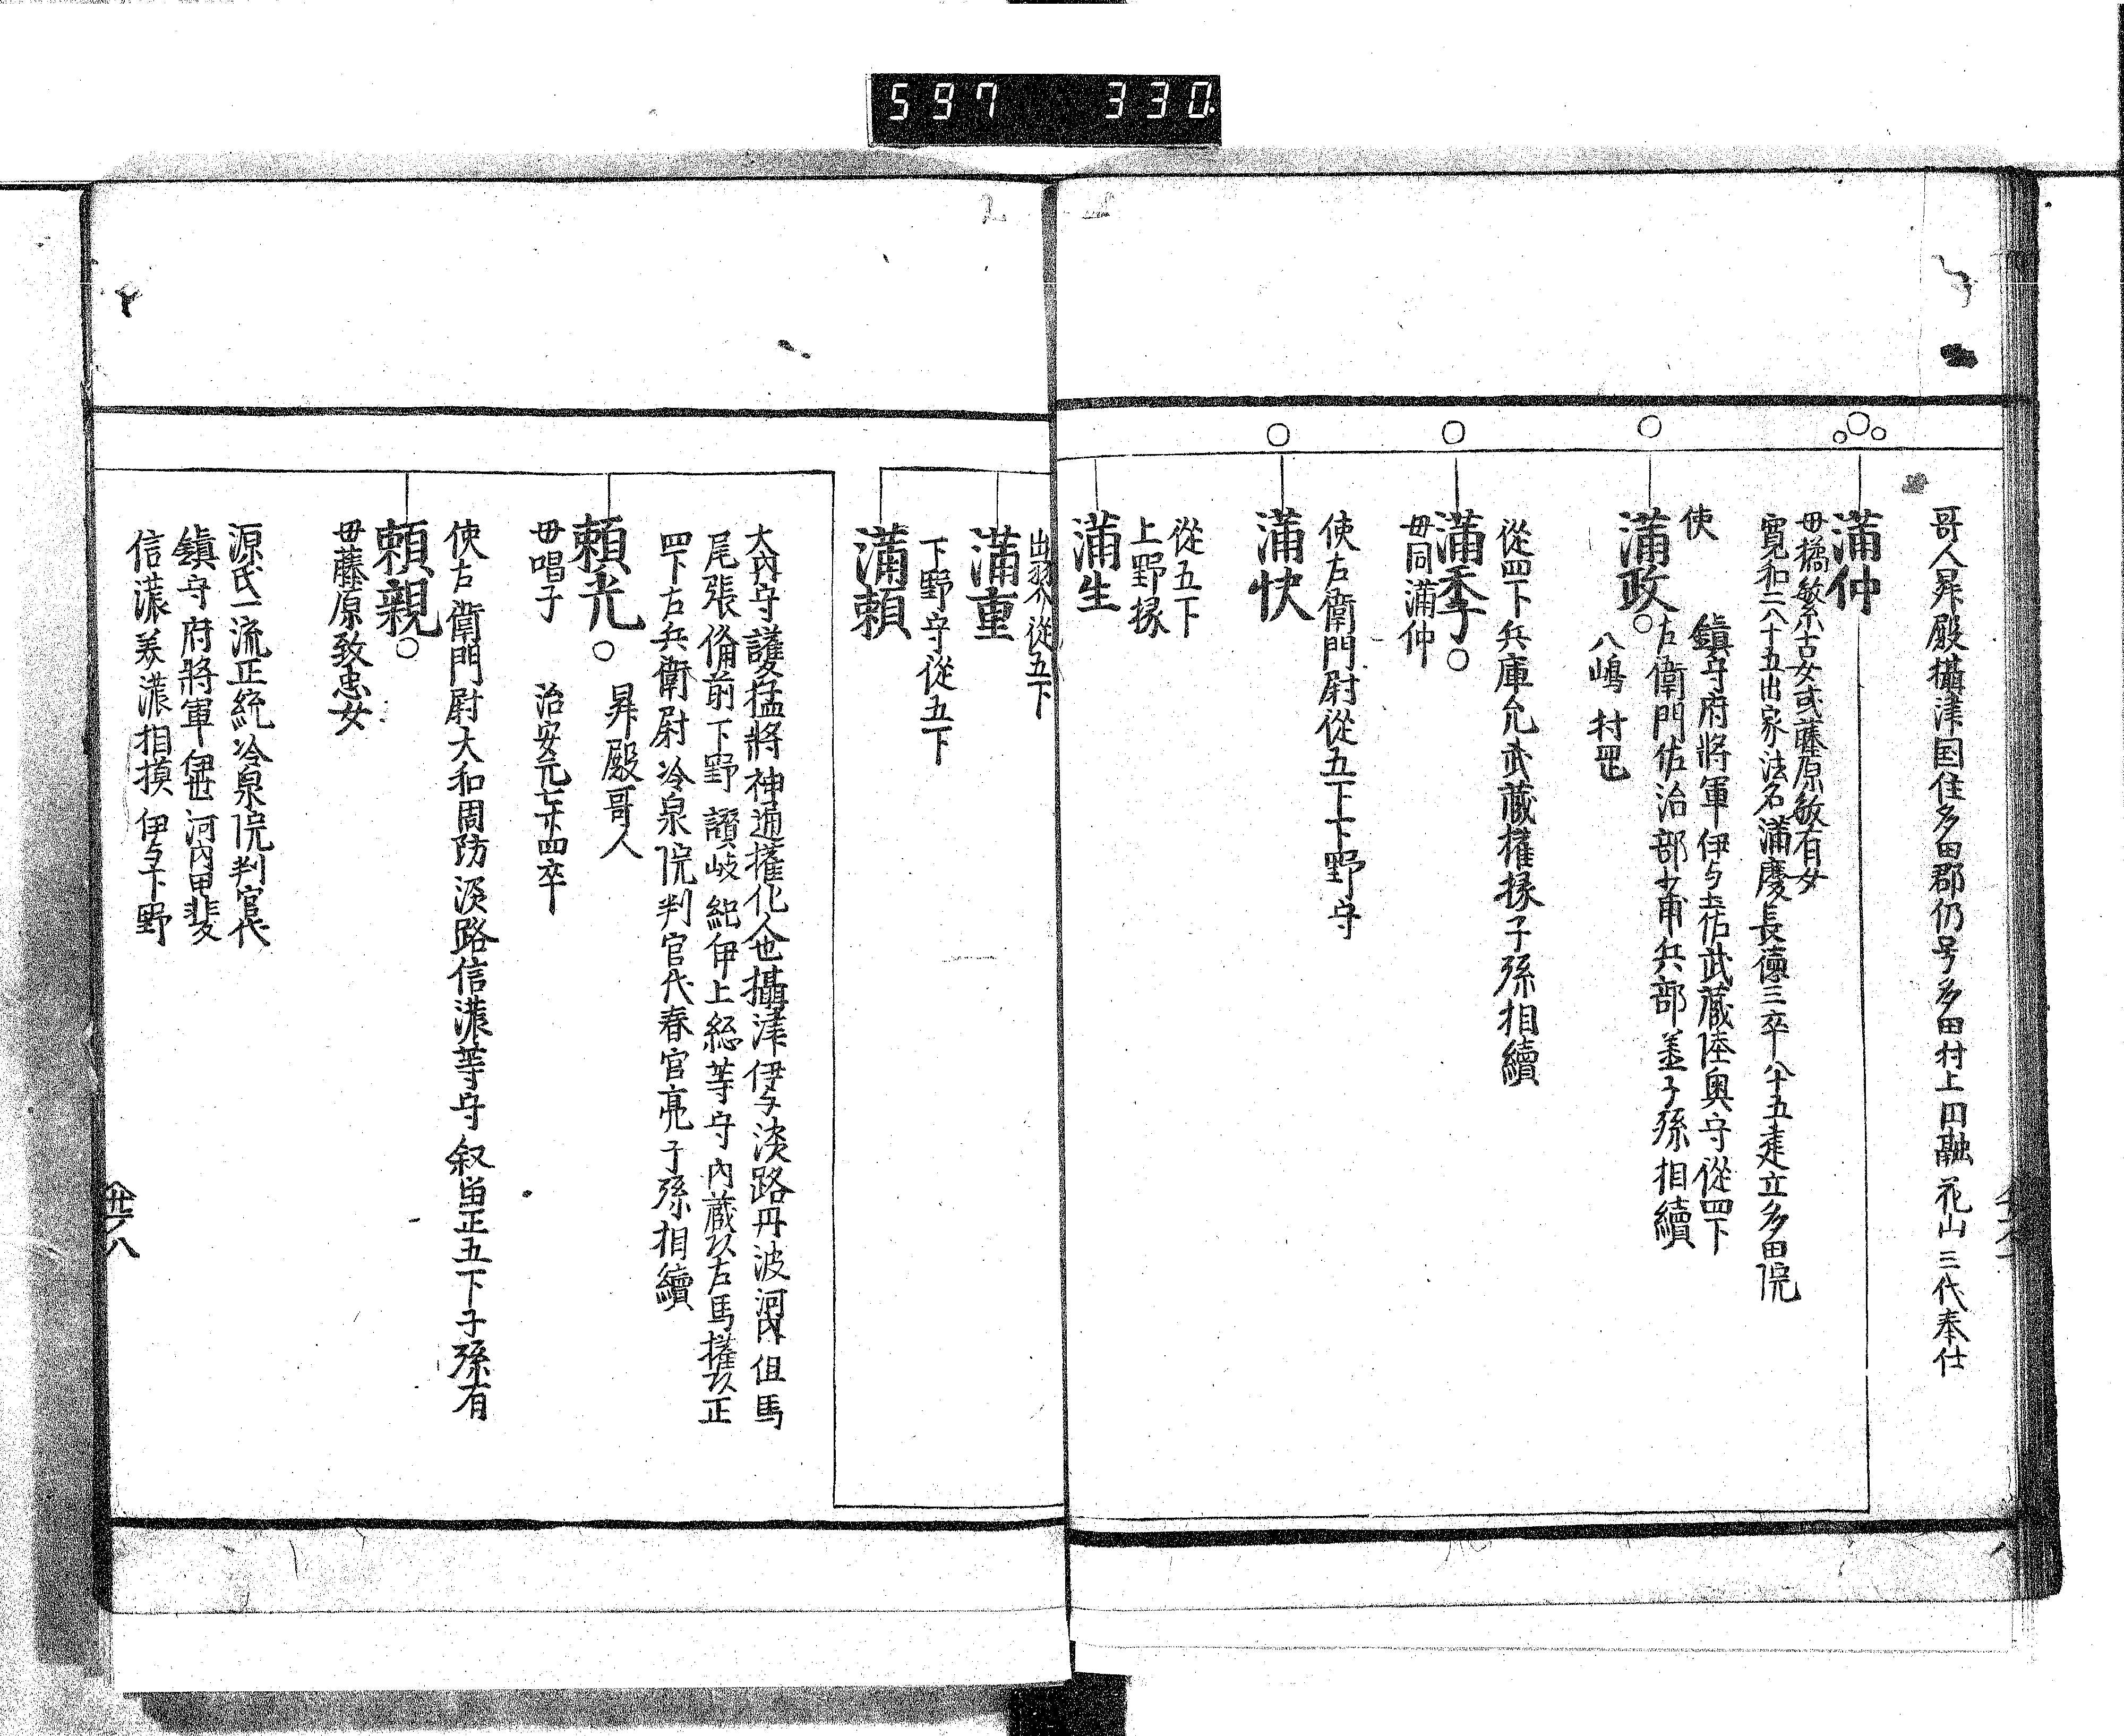 597 330
哥人昇殿攝津国住多田郡仍号多田村上円融花山三代奉仕
満仲
毋橘敏系古女或藤原敏有女
寛和二八十五出家法名満慶長德三卒八十五建立多田院
使
鎭守府將軍伊与土佐武藏陸奥守從四下
満政
左衛門佐治部少甫兵部丞子孫相續
八嶋 村罡
從四下兵庫允武藏權掾子孫相續
満季
毋同満仲
使左衛門尉從五下下野守
満快
從五下
上野掾
満生
出羽介從五下
満重
下野守從五下
満頼
大內守護猛將神通權化人也攝津伊与淡路丹波河內但馬
尾張俻前下野讃岐紀伊上総等守內蔵頭左馬權頭正
四下左兵衛尉冷泉院判官代春宮亮子孫相續
頼光
昇殿哥人
毋唱子 治安元七廿四卒
使左衛門尉大和周防淡路信濃等守叙畄正五下子孫有
頼親
毋藤原致忠女
源氏一流正統冷泉院判官代
鎭守府將軍伊世河內甲斐
信濃美濃相摸伊与下野
廿ノ八